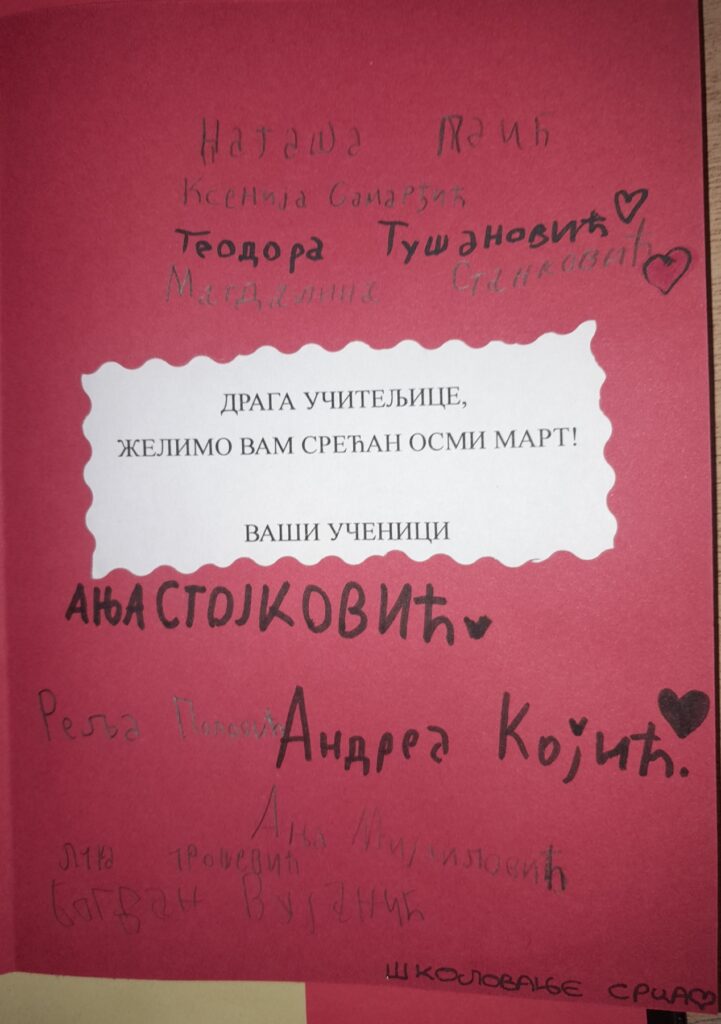 Наташа
Ксенија Самарџић
Теодора Тушановић
Магдалина Станковић
ДРАГА УЧИТЕЉИЦЕ,
ЖЕЛИМО ВАМ СРЕЋАН ОСМИ МАРТ!
ВАШИ УЧЕНИЦИ
АЊА СТОЈКОВИЋ
Реља
Андреа Којић.
Ања
Богдан Вујанић
ШКОЛОВАЊЕ СРЦА